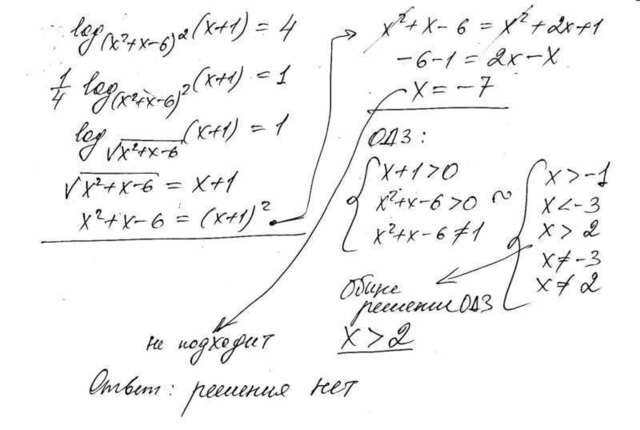 log_(x²+x-6)² (x+1) = 4
1/4 log_(x²+x-6)² (x+1) = 1
log_√(x²+x-6) (x+1) = 1
√(x²+x-6) = x+1
x²+x-6 = (x+1)²
x²+x-6 = x²+2x+1
-6-1 = 2x-x
x = -7
ОДЗ:
x+1>0
x²+x-6>0 ~
x²+x-6≠1
x>-1
x<-3
x>2
x≠-3
x≠2
Общее
решение ОДЗ
x>2
не подходит
Ответ: решения нет